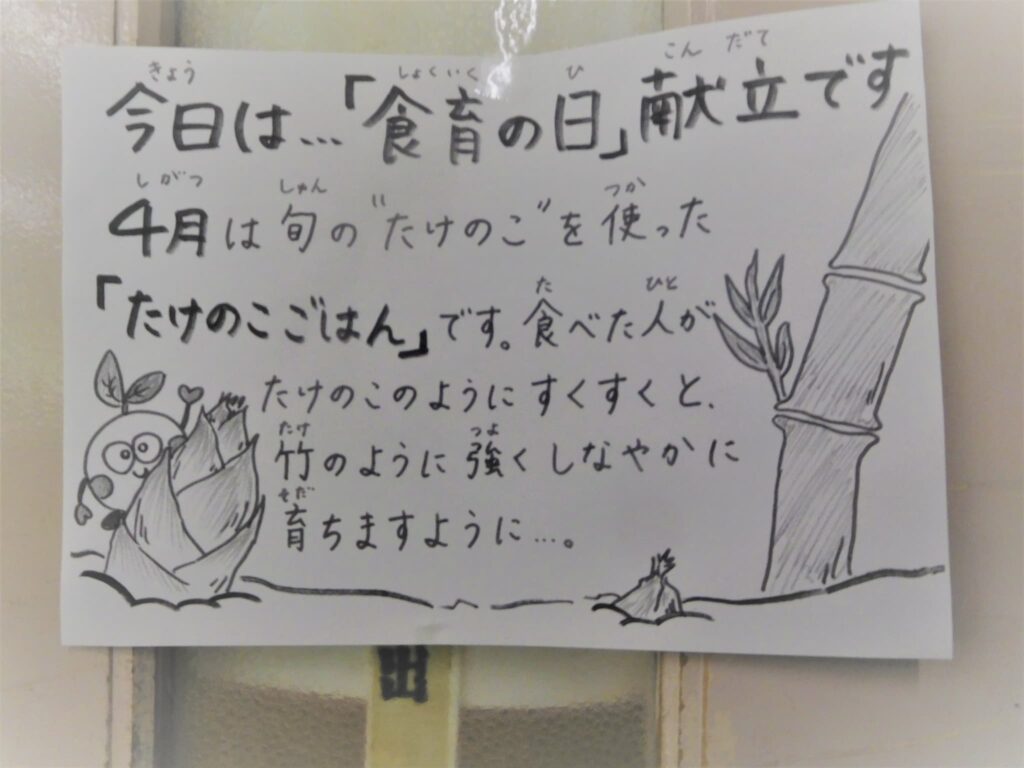 きょう しょくいく ひ こん だて
今日は…「食育の日」献立です
しがつ しゅん つか
4月は旬の“たけのこ”を使った
た ひと
「たけのこごはん」です。食べた人が
たけのこのようにすくすくと、
たけ つよ
竹のように強くしなやかに
そだ
育ちますように…。
出